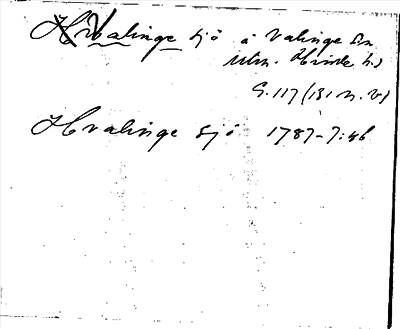 Hvalinge sjö å Valinge än
utm. Hvide h:d
G. 117 (131 n. v)
Hvalinge sjö 1787-7:46